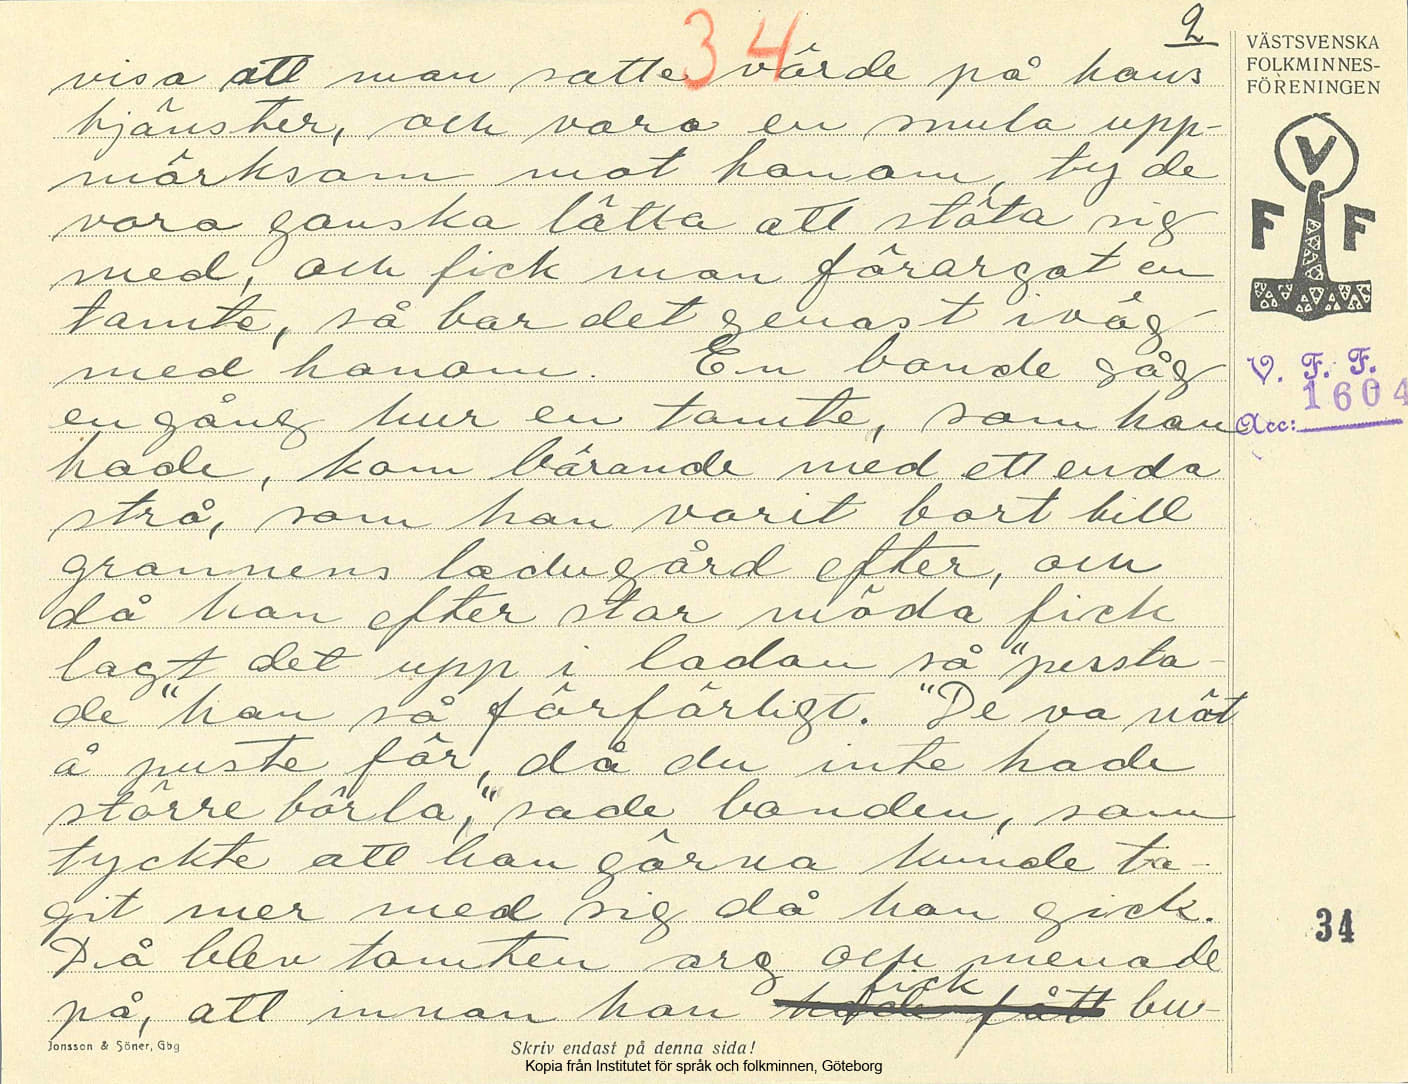 34
2
visa att man satte värde på hans
tjänster, och vara en smula upp-
märksam mot honom, ty de
voro ganska lätta att stöta sig
med, och fick man förargat en
tomte, så bar det genast iväg
med honom. En bonde såg
en gång hur en tomte, som han
hade, kom bärande med ett enda
strå, som han varit bort till
grannens ladugård efter, och
då han efter stor möda fick
lagt det upp i ladan så "pussta-
de" han så förfärligt. "De va nöt
å puste för, då du inte hade
större börla," sade bonden, som
tyckte att han gärna kunde ta-
git mer med sig då han gick.
Då blev tomten arg och menade
på, att innan han hade fått fick bur-
VÄSTSVENSKA
FOLKMINNES-
FÖRENINGEN
V
F F
V. F. F.
1604
Acc:
34
Jonsson & Söner, Gbg
Skriv endast på denna sida!
Kopia från Institutet för språk och folkminnen, Göteborg